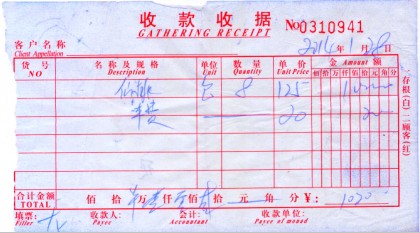 收款收据 No0310941
GATHERING RECEIPT
2014年1月28日
客户名称
Client Appellation
货号 名称及规格 单位 数量 单价 金 Amount 额
NO Description Unit Quantity Unit Price 佰 拾 万 仟 佰 拾 元 角 分
8 125
车费 20
合计金额 佰 拾 万 仟 佰 拾 元 角 分 ¥: 1020
TOTAL
填票: 收款人: 会计: 收款单位:
Filler Payee Accountant Payee of monod
(存根(白)二顾客(红)